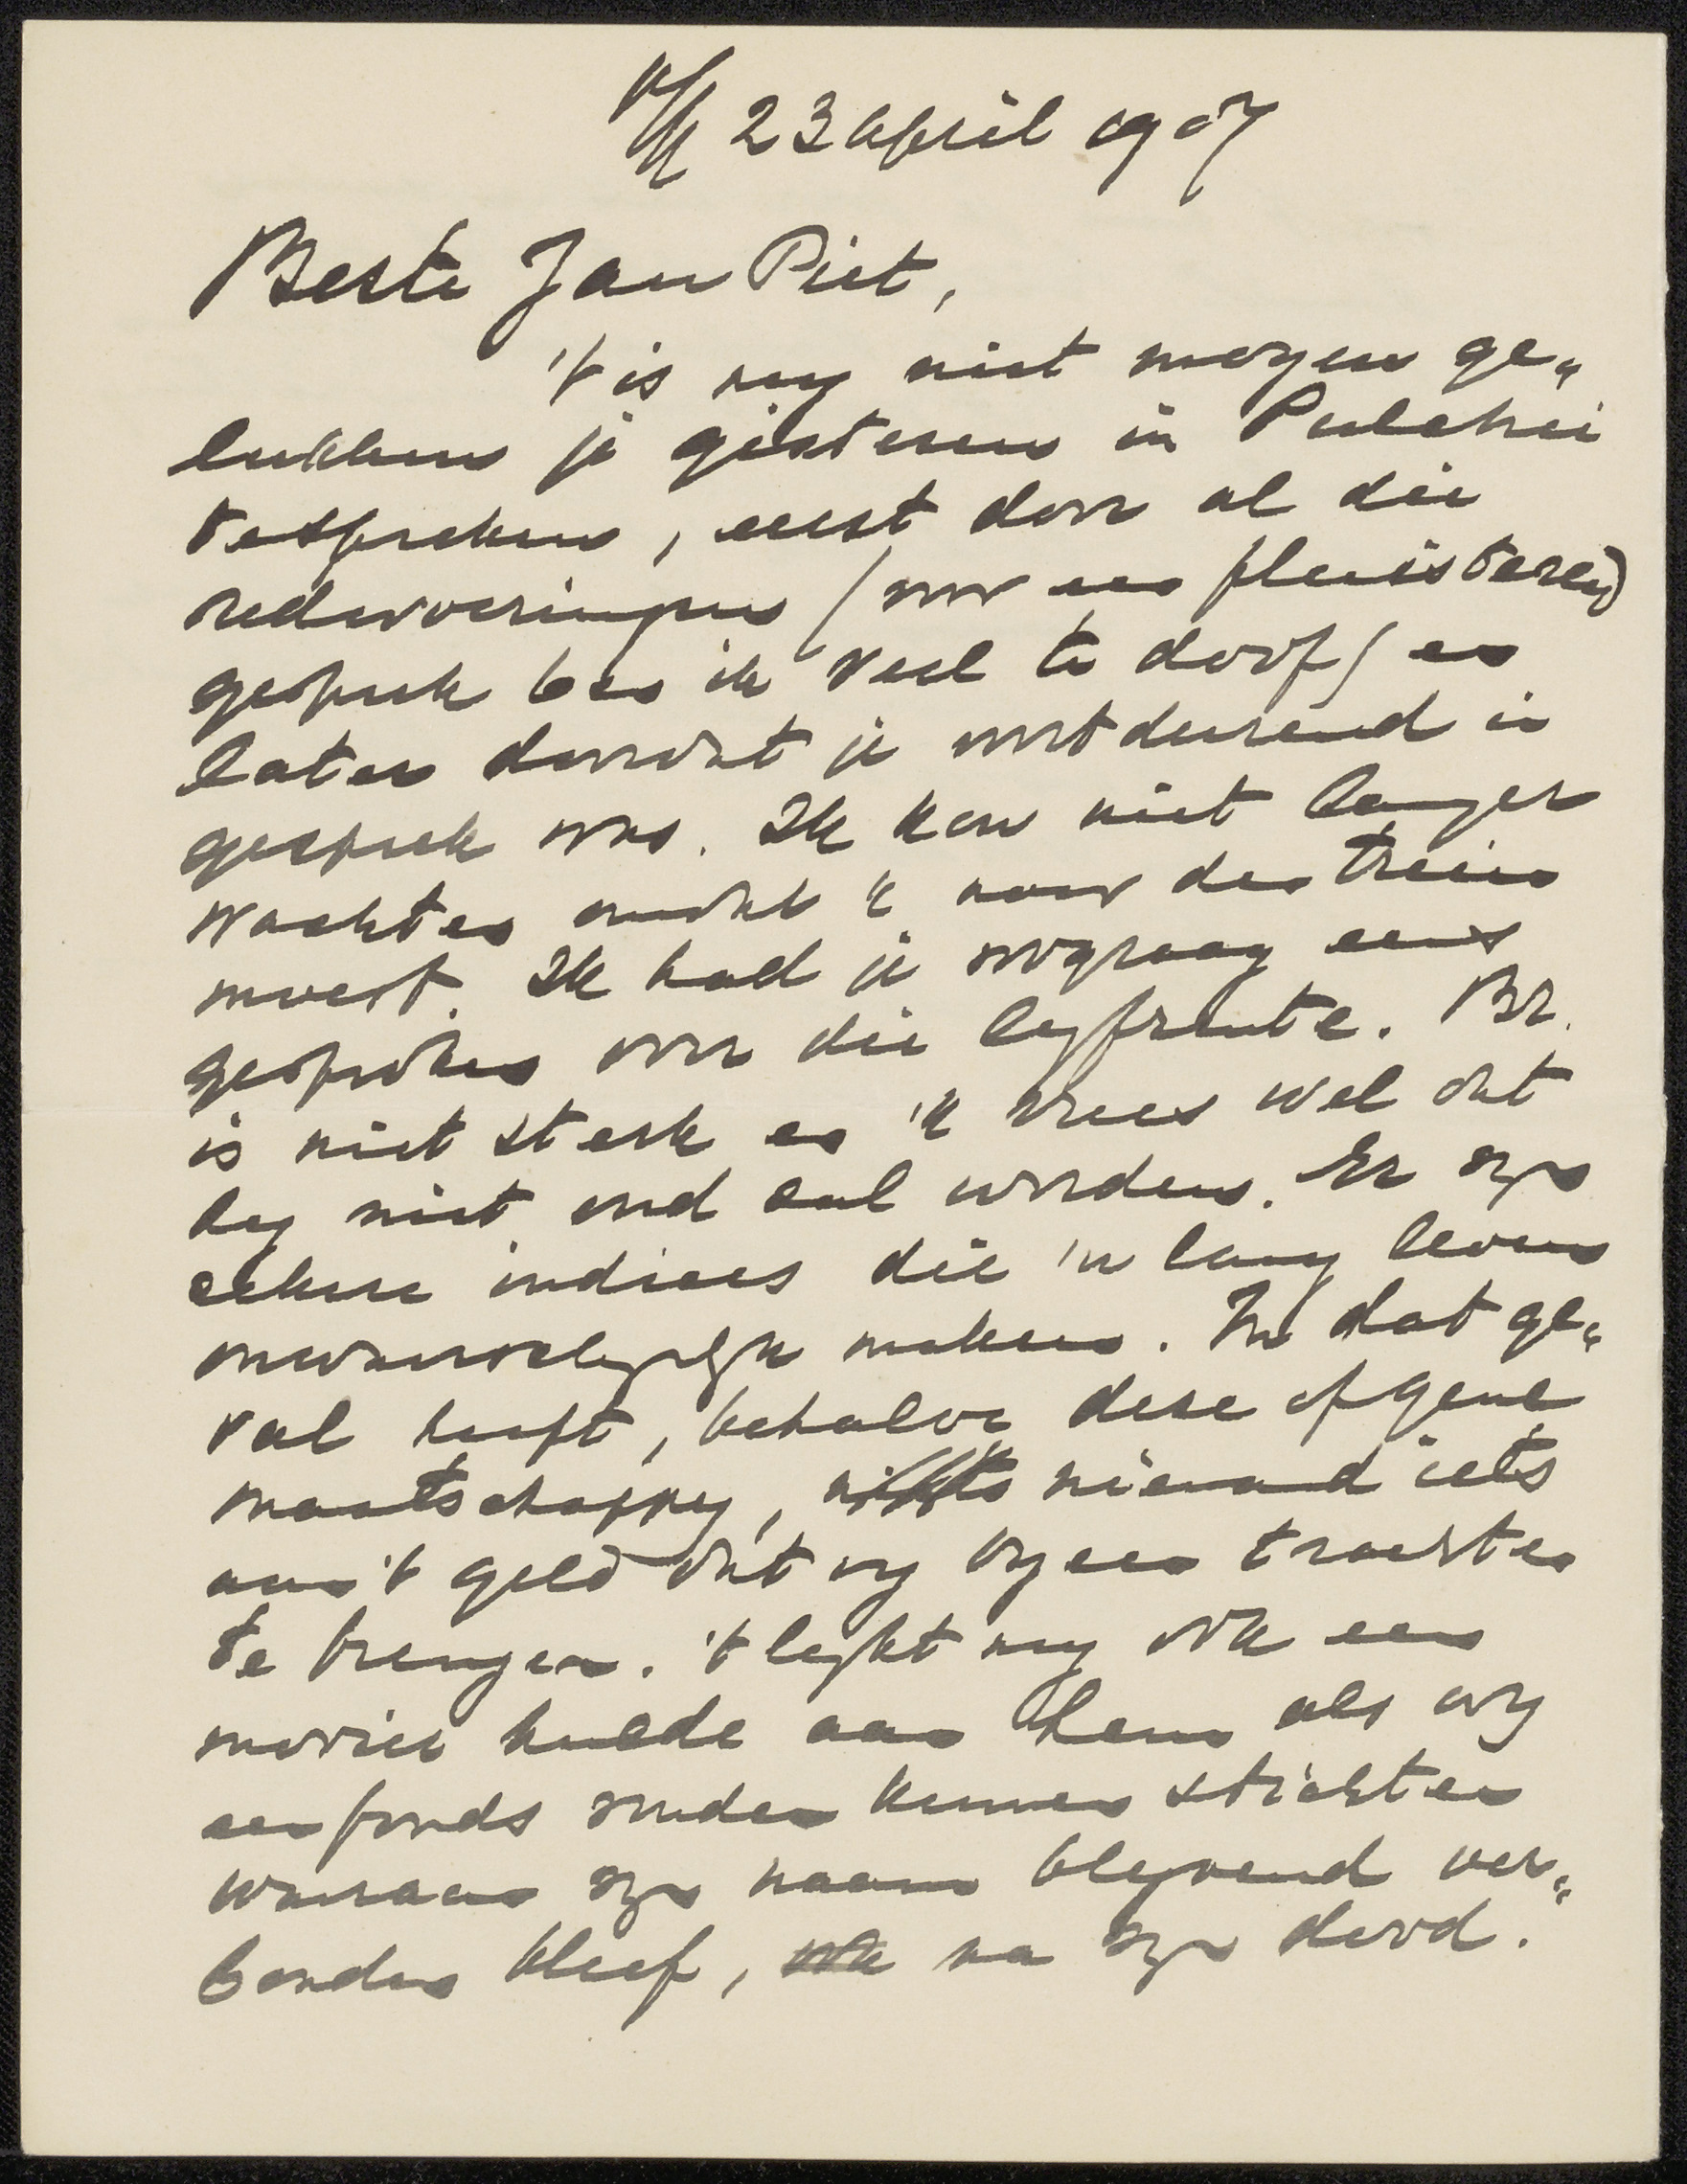 23 April 1907
Beste Jan Piet,
't is my niet mogen ge„
lukken je gisteren in Pulchri
te spreken, eerst door al die
redevoeringen (voor een fluisterend
gesprek ben ik veel te doof) en
later doordat je voortdurend in
gesprek was. Ik kon niet langer
wachten omdat 'k naar den trein
moest. Ik had je zoo graag eens
gesproken over die lyfrente. Br.
is niet sterk en 'k vrees wel dat
hy niet oud zal worden. Er zyn
zekere indices die 'n lang leven
onwaarschynlyk maken. In dat ge„
val heeft, behalve deze of gene
maatschappy, niemand iets
aan 't geld dat wy byeen trachten
te brengen. 't lykt my ook een
mooier hulde aan hem als wy
een fonds zouden kunnen stichten
waaraan zyn naam blyvend ver„
bonden bleef, ook na zyn dood.